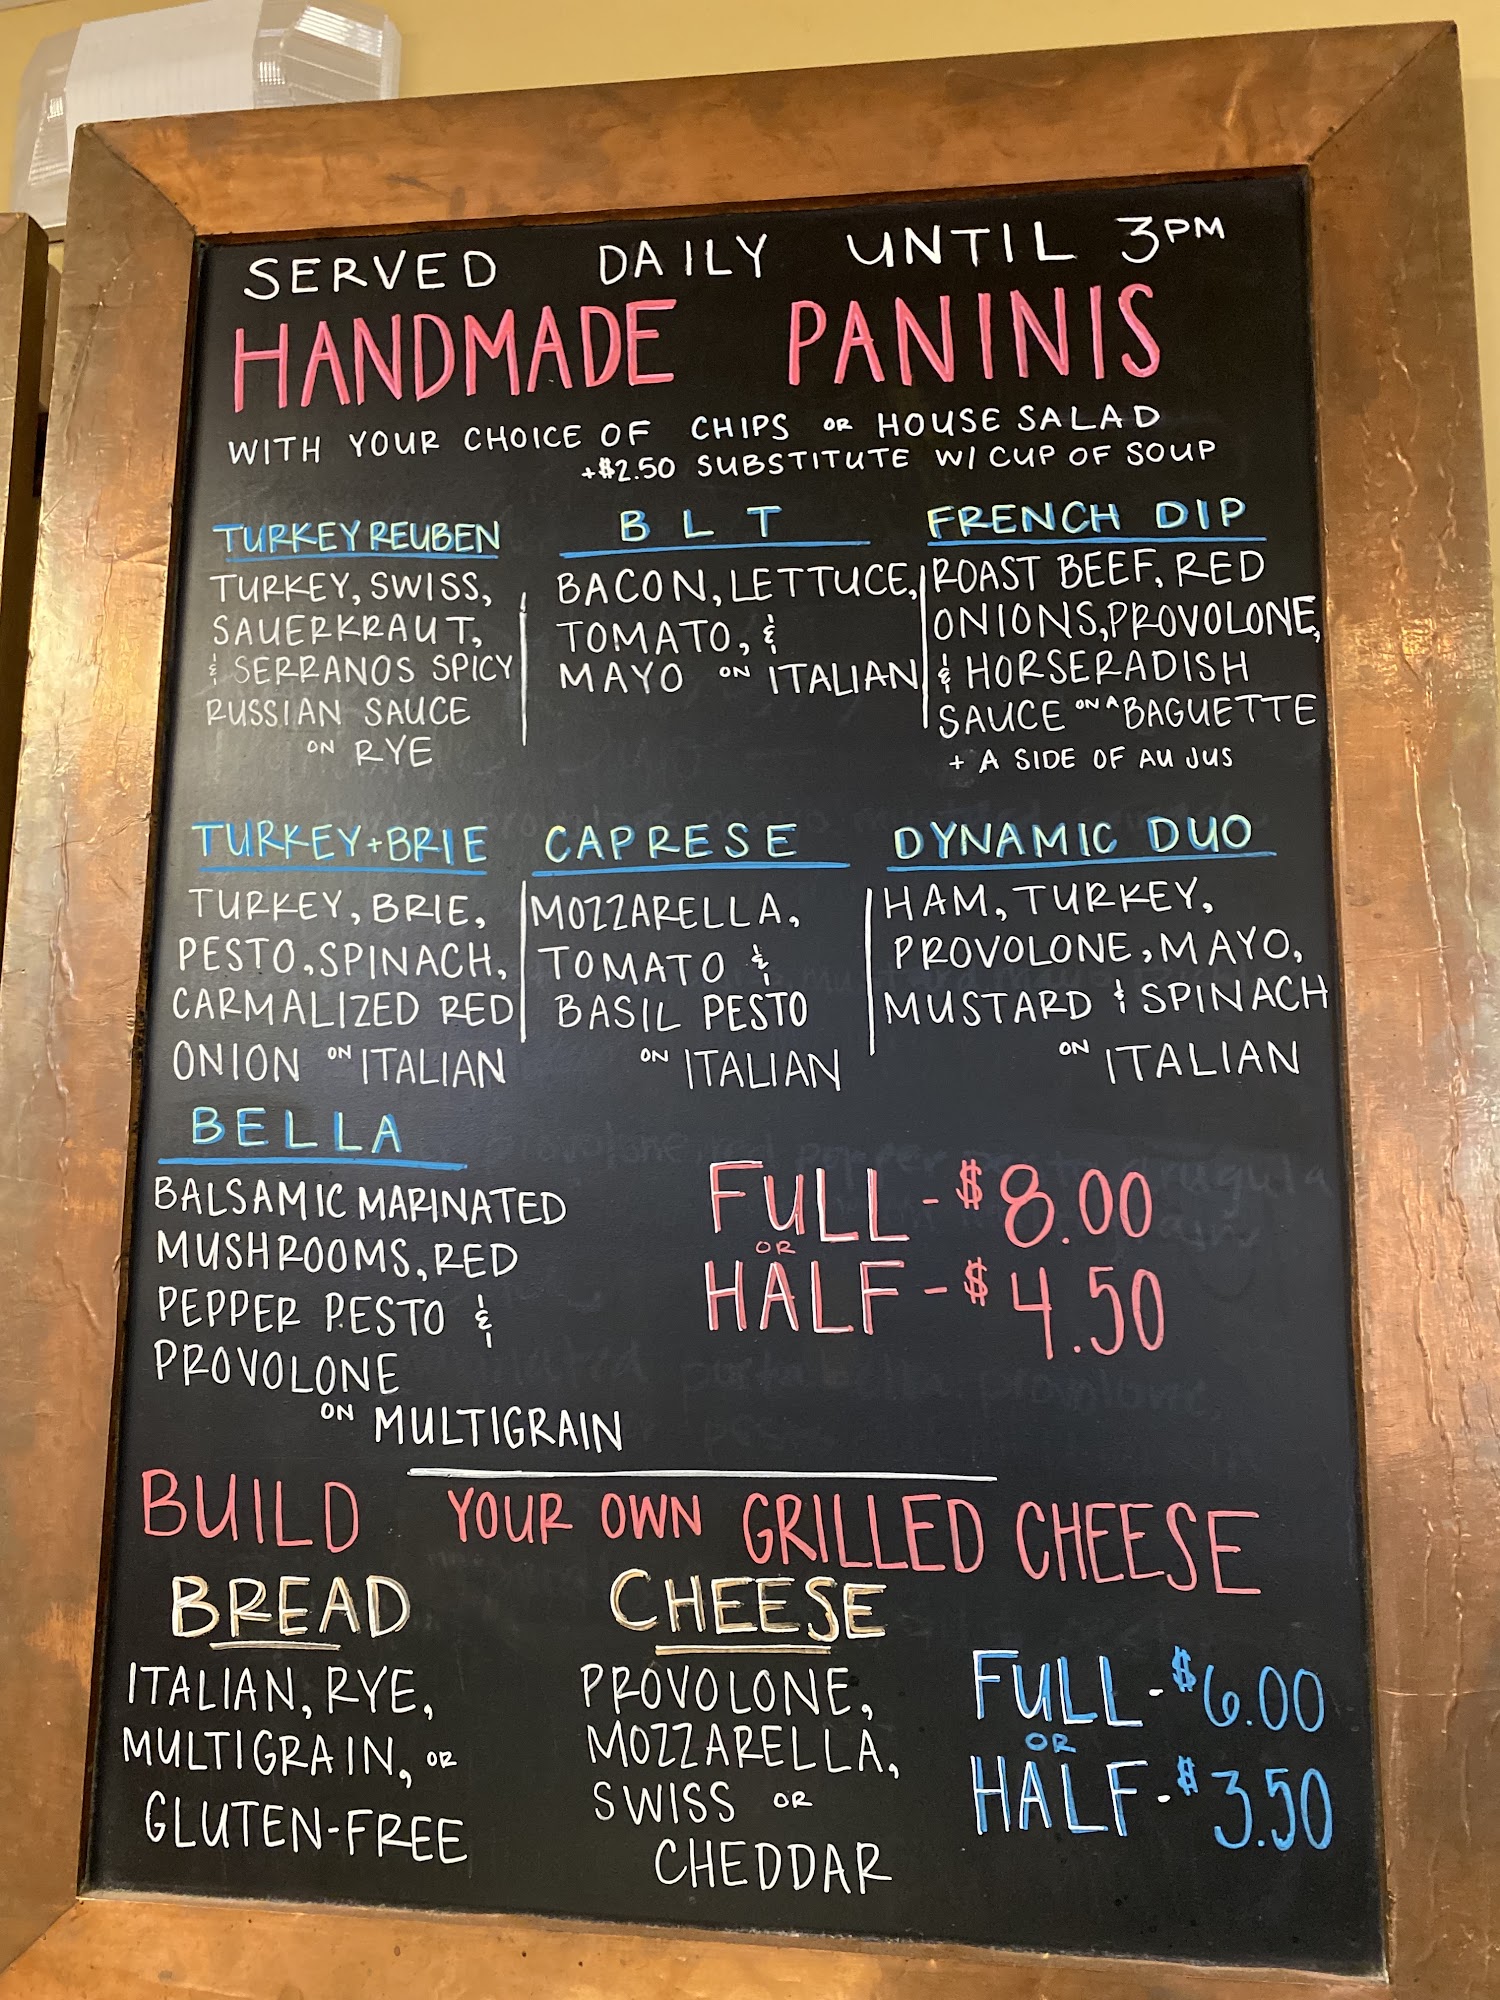 SERVED DAILY UNTIL 3PM
HANDMADE PANINIS
WITH YOUR CHOICE OF CHIPS OR HOUSE SALAD
+$2.50 SUBSTITUTE W/ CUP OF SOUP
TURKEY REUBEN
TURKEY, SWISS,
SAUERKRAUT,
& SERRANOS SPICY
RUSSIAN SAUCE
ON RYE
BLT
BACON, LETTUCE,
TOMATO, &
MAYO ON ITALIAN
FRENCH DIP
ROAST BEEF, RED
ONIONS, PROVOLONE,
& HORSERADISH
SAUCE ON A BAGUETTE
+ A SIDE OF AU JUS
TURKEY+BRIE
TURKEY, BRIE,
PESTO, SPINACH,
CARMALIZED RED
ONION ON ITALIAN
CAPRESE
MOZZARELLA,
TOMATO &
BASIL PESTO
ON ITALIAN
DYNAMIC DUO
HAM, TURKEY,
PROVOLONE, MAYO,
MUSTARD & SPINACH
ON ITALIAN
BELLA
BALSAMIC MARINATED
MUSHROOMS, RED
PEPPER PESTO &
PROVOLONE
ON MULTIGRAIN
FULL - $8.00
OR
HALF - $4.50
BUILD YOUR OWN GRILLED CHEESE
BREAD
ITALIAN, RYE,
MULTIGRAIN, OR
GLUTEN-FREE
CHEESE
PROVOLONE,
MOZZARELLA,
SWISS OR
CHEDDAR
FULL - $6.00
OR
HALF - $3.50